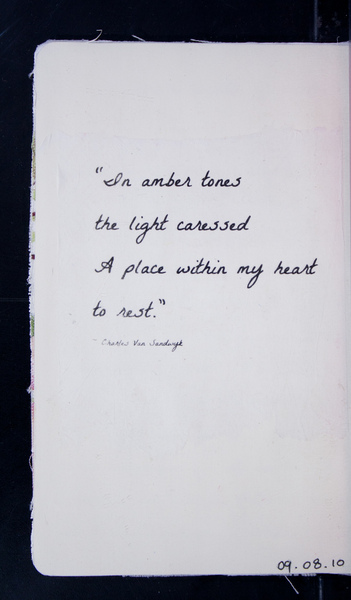 "In amber tones
the light caressed
A place within my heart
to rest."
- Charles Van Sandwyk
09.08.10